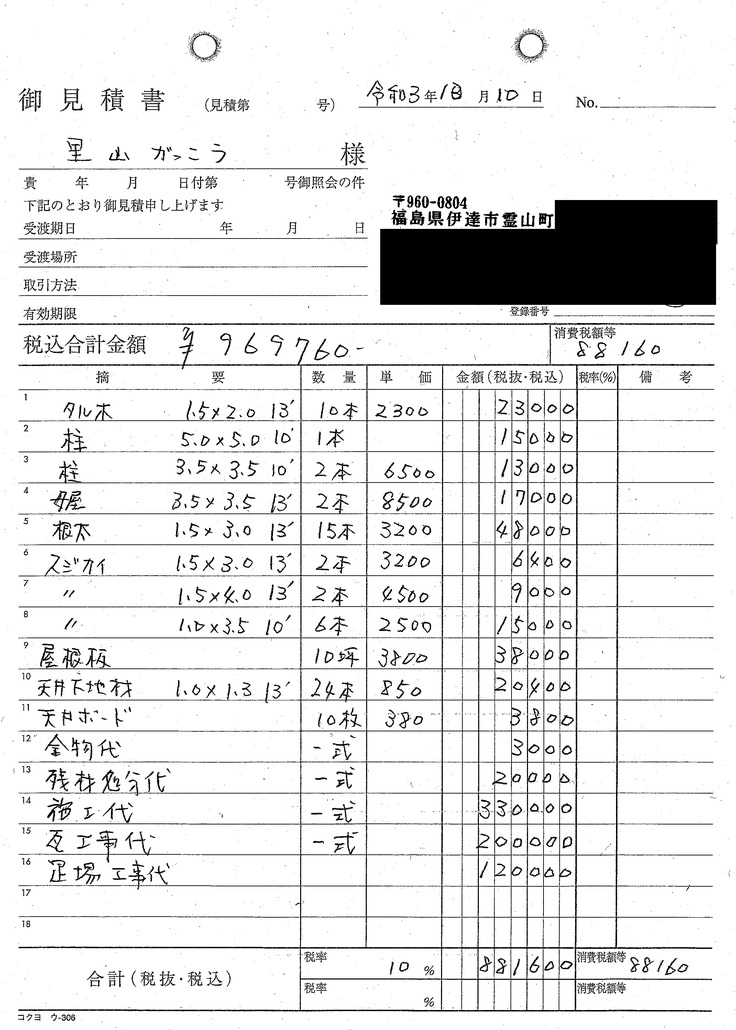 御見積書 (見積第 号) 令和3年10月10日 No.
里山がっこう 様
貴 年 月 日付第 号御照会の件
下記のとおり御見積申し上げます
〒960-0804
福島県伊達市霊山町
受渡期日 年 月 日
受渡場所
取引方法
有効期限
登録番号
税込合計金額 ¥969760- 消費税額等 88160
摘要 数量 単価 金額(税抜・税込) 税率(%) 備考
1 タル木 1.5×2.0 13' 10本 2300 23000
2 柱 5.0×5.0 10' 1本 15000
3 柱 3.5×3.5 10' 2本 6500 13000
4 母屋 3.5×3.5 13' 2本 8500 17000
5 根太 1.5×3.0 13' 15本 3200 48000
6 スジカイ 1.5×3.0 13' 2本 3200 6400
7 〃 1.5×4.0 13' 2本 4500 9000
8 〃 1.0×3.5 10' 6本 2500 15000
9 屋根板 10坪 3800 38000
10 天井下地材 1.0×1.3 13' 24本 850 20400
11 天井ボード 10枚 380 3800
12 金物代 一式 3000
13 残材処分代 一式 20000
14 施工代 一式 330000
15 瓦工事代 一式 200000
16 足場工事代 120000
17
18
合計(税抜・税込) 税率 10% 881600 消費税額等 88160
税率 % 消費税額等
コクヨ ウ-306